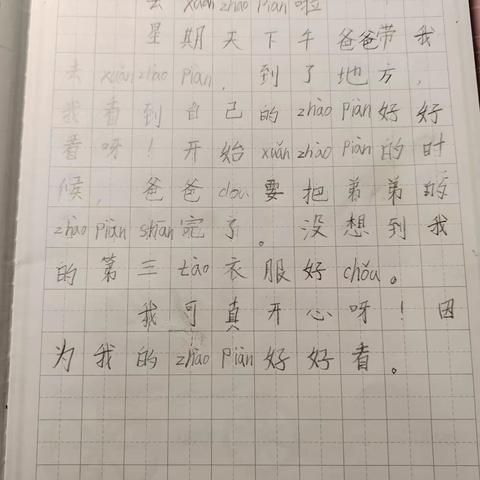 去 xuǎn zhào piàn 啦
星期天下午爸爸带我
去 xuǎn zhào piàn，到了地方，
我看到自己的 zhào piàn 好好
看呀！开始 xuǎn zhào piàn 的时
候，爸爸 dou 要把弟弟的
zhào piàn shān 完了。没想到我
的第三 tào 衣服好 chǒu。
我可真开心呀！因
为我的 zhào piàn 好好看。